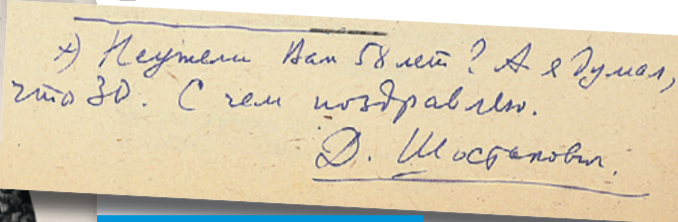 x) Неужели Вам 58 лет? А я думал,
что 30. С чем поздравляю.
Д. Шостакович.